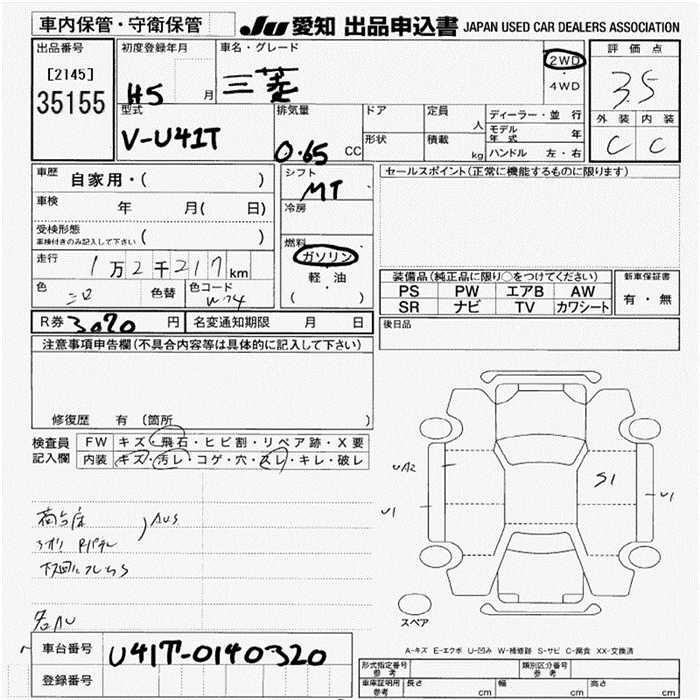 車内保管・守衛保管
JU 愛知 出品申込書 JAPAN USED CAR DEALERS ASSOCIATION
出品番号
[2145]
35155
初度登録年月
H5 月
車名・グレード
三菱
2WD
・
4WD
評価点
3.5
外装 内装
C C
型式
V-U41T
排気量
0.65 CC
ドア
形状
定員
人
積載
kg
ディーラー・並行
モデル年式 年
ハンドル 左・右
車歴 自家用・( )
車検 年 月( 日)
受検形態
車検付きのみ記入して下さい ( )
走行 1万2千217km
色 色替 色コード
W-74
シフト
MT
冷房
燃料
ガソリン
・
軽・油
( )
セールスポイント(正常に機能するものに限ります)
装備品(純正品に限り○をつけてください)
PS PW エアB AW
SR ナビ TV カワシート
新車保証書
有・無
R券 3070 円 名変通知期限 月 日
後日品
注意事項申告欄(不具合内容等は具体的に記入して下さい)
修復歴 有 (箇所 )
検査員記入欄
FW キズ・飛石・ヒビ割・リペア跡・X要
内装 キズ・汚レ・コゲ・穴・スレ・キレ・破レ
UA2
U1
S1
U1
荷台床
AUS
スペア
A-キズ E-エクボ U-凹み W-補修跡 S-サビ C-腐食 XX-交換済
車台番号 U41T-0140320
登録番号
形式指定番号 参考
類別区分番号 参考
車庫証明用 参考 長さ cm 幅 cm 高さ cm